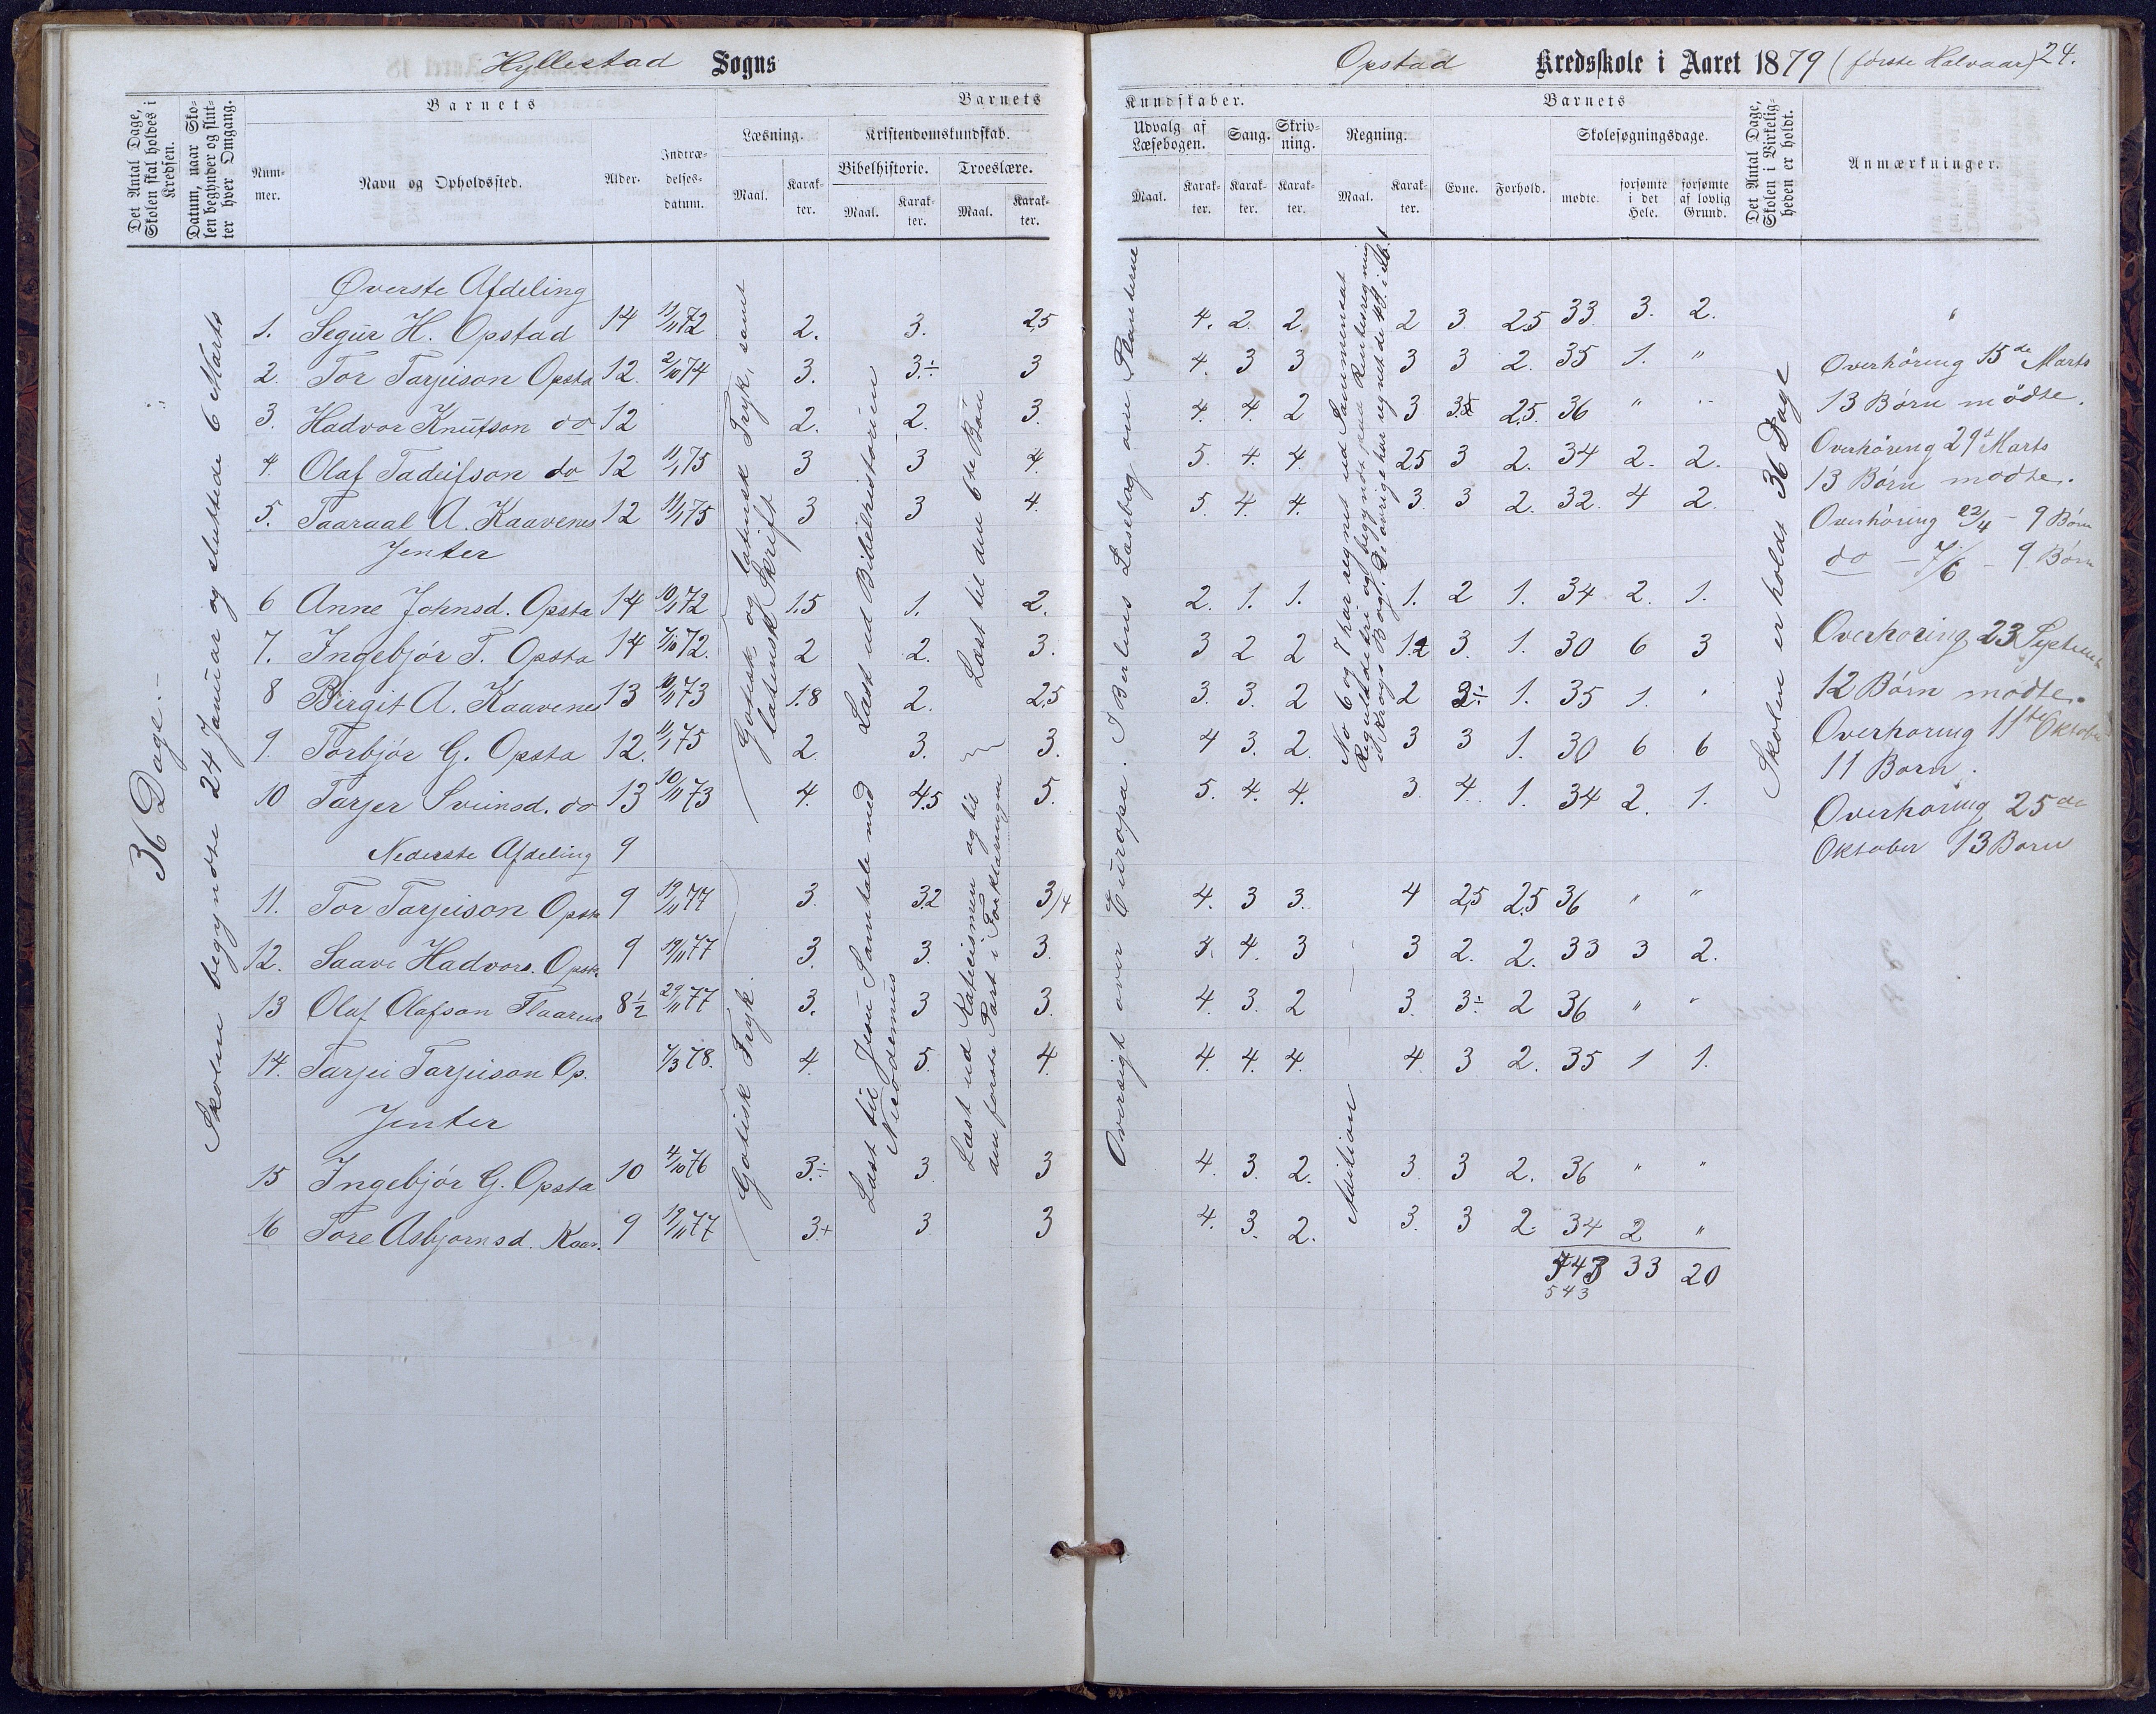 Hyllestad Sogns
Opstad Kredsskole i Aaret 1879 (første Halvaar) 24.
Det Antal Dage, Skolen skal holdes i Kredsen.
Datum, naar Skolen begynder og slutter hver Omgang.
Barnets
Nummer.
Navn og Opholdssted.
Alder.
Indtrædelsesdatum.
Barnets
Læsning.
Kristendomskundskab.
Bibelhistorie.
Troeslære.
Maal.
Karakter.
Maal.
Karakter.
Maal.
Karakter.
Kundskaber.
Udvalg af Læsebogen.
Sang.
Skrivning.
Regning.
Maal.
Karakter.
Karakter.
Karakter.
Maal.
Karakter.
Barnets
Evne.
Forhold.
Skolesøgningsdage.
mødte.
forsømte i det Hele.
forsømte af lovlig Grund.
Det Antal Dage, Skolen i Virkeligheden er holdt.
Anmærkninger.
36 Dage.-
Skolen begyndte 24 Januar og sluttede 6 Marts
Øverste Afdeling
1. Segur H. Opstad 14 11/11 72 2. 3. 2,5 4. 2. 2. 2 3 2.5 33 3. 2. "
2. Tor Tarjeison Opsta 12. 2/10 74 3. 3.÷ 3 4. 3 3 3 3 2. 35 1. "
3. Hadvor Knutson do 12 2. 2. 3. 4. 4. 2 3 2.5. 36 " "
4 Olaf Tadeifson do 12 11/1 75 3 3 4. 5. 4. 4. 2.5 3 2. 34 2. 2.
5. Taaraal A. Kaavenes 12 11/1 75 3 3 4. 5. 4. 4. 3. 3 2. 32. 4 2.
Jenter
6 Anne Johnsd. Opsta 14 10/1 72 1.5 1. 2. 2. 1. 1. 1. 2 1. 34 2. 1.
7. Ingebjór T. Opsta 14 7/10 72. 2 2. 3. 3 2 2 3. 1. 30 6 3
8 Birgit A. Kaavenes 13 10/11 73 1.8 2. 2,5 3. 3. 2 2 1. 35 1. "
9. Torbjór G. Opsta 12. 11/1 75 2 3. 3. 4 3. 2. 3 3 1. 30 6 6
10 Tarjer Sveinsd. do 13 10/11 73 4. 4.5 5. 5. 4. 4. 3. 4. 1. 34 2. 1.
Nederste Afdeling 9
11. Tor Tarjeison Opsta 9 19/11 77 3. 3.2 3/4 4. 3 3. 4 2,5 2.5 36 " "
12. Saave Hadvors. Opsta 9 19/11 77 3. 3. 3. 4. 3 3 2. 2. 33 3 2.
13 Olaf Olafson Flaarend 8½ 29/11 77 3. 3 3. 4. 3. 2 3. 3÷ 2 36 " "
14. Tarjei Tarjeison Op. 7/3 78. 4. 5. 4. 4. 4. 4. 4. 3 2. 35 1 1.
Jenter
15 Ingebjór G. Opsta 10 4/10 76 3.÷ 3. 3 4. 3. 2. 3. 3 2. 36 " "
16 Tore Asbjornsd. Kaav. 9 19/11 77 3.+ 3. 3 4. 3. 2. 3. 3 2. 34 2 "
33 20
543
Gotisk og latinsk Tryk, samt latinsk Skrift
Læst ud Bibelhistorien
Læst til den 6te Bøn
Gotisk Tryk.
Læst til Jesu Samtale med Nicodemus
Læst ud Katecismen og til den første Part i Forklaringen
Oversigt over Europa. I Bærlens Læsebog om Planterne
No 6 og 7 har regnet ud Sammensat Reguladetri og begyndt paa Rentesregning i Krogs Bog. De øvrige har regnet de
Addition
Skolen er holdt 36 Dage
Overhöring 15de Marts
13 Børn mödte.
Overhöring 29d Marts
13 Børn mødte.
Overhöring 22/4 - 9 Børn
do - 7/6 - 9 Børn
Overhøring 23 September
12 Børn mødte.
Overhøring 11te Oktober
11 Børn.
Overhøring 25de
Oktober 13 Børn